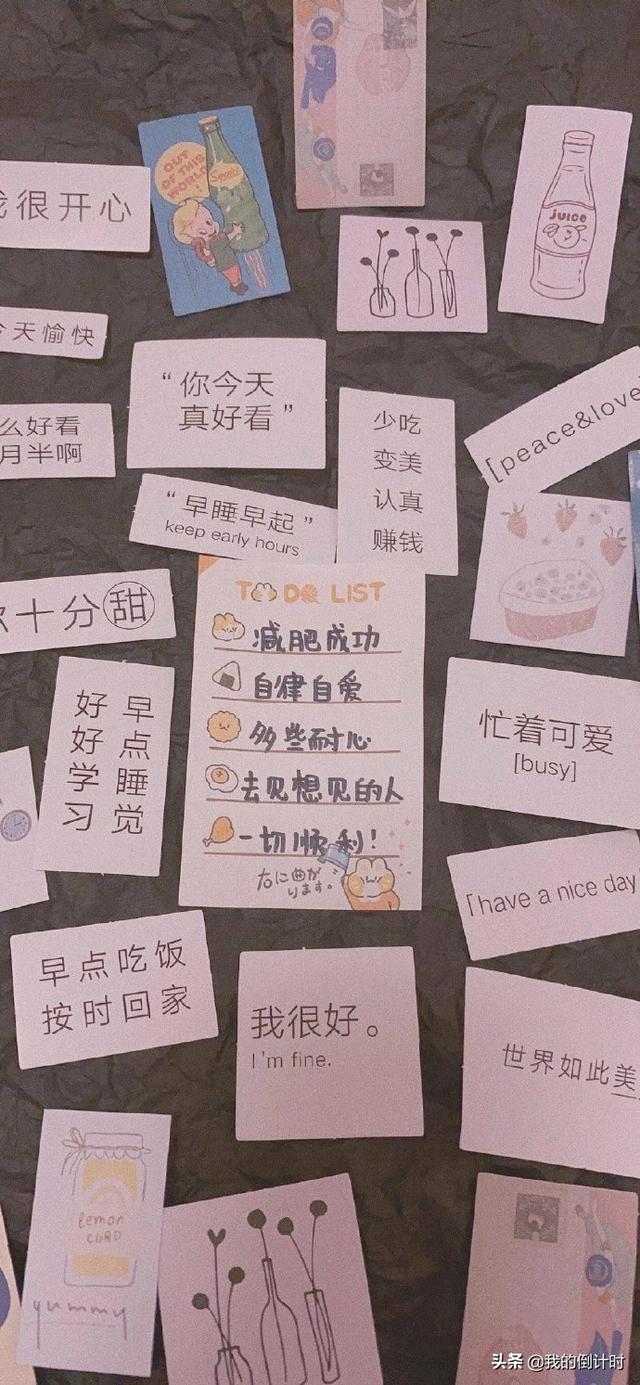 OUT
OF THIS
WORLD
!
很开心
JUICE
今天愉快
“你今天
真好看”
么好看
月半啊
少吃
变美
认真
赚钱
[peace&love
“早睡早起”
keep early hours
十分甜
TO DO LIST
减肥成功
自律自爱
多些耐心
去见想见的人
一切顺利!
右に曲が
ります。
早点睡觉
好好学习
忙着可爱
[busy]
[have a nice day
早点吃饭
按时回家
我很好。
I'm fine.
世界如此美
lemon
CURD
yummy
头条 @我的倒计时